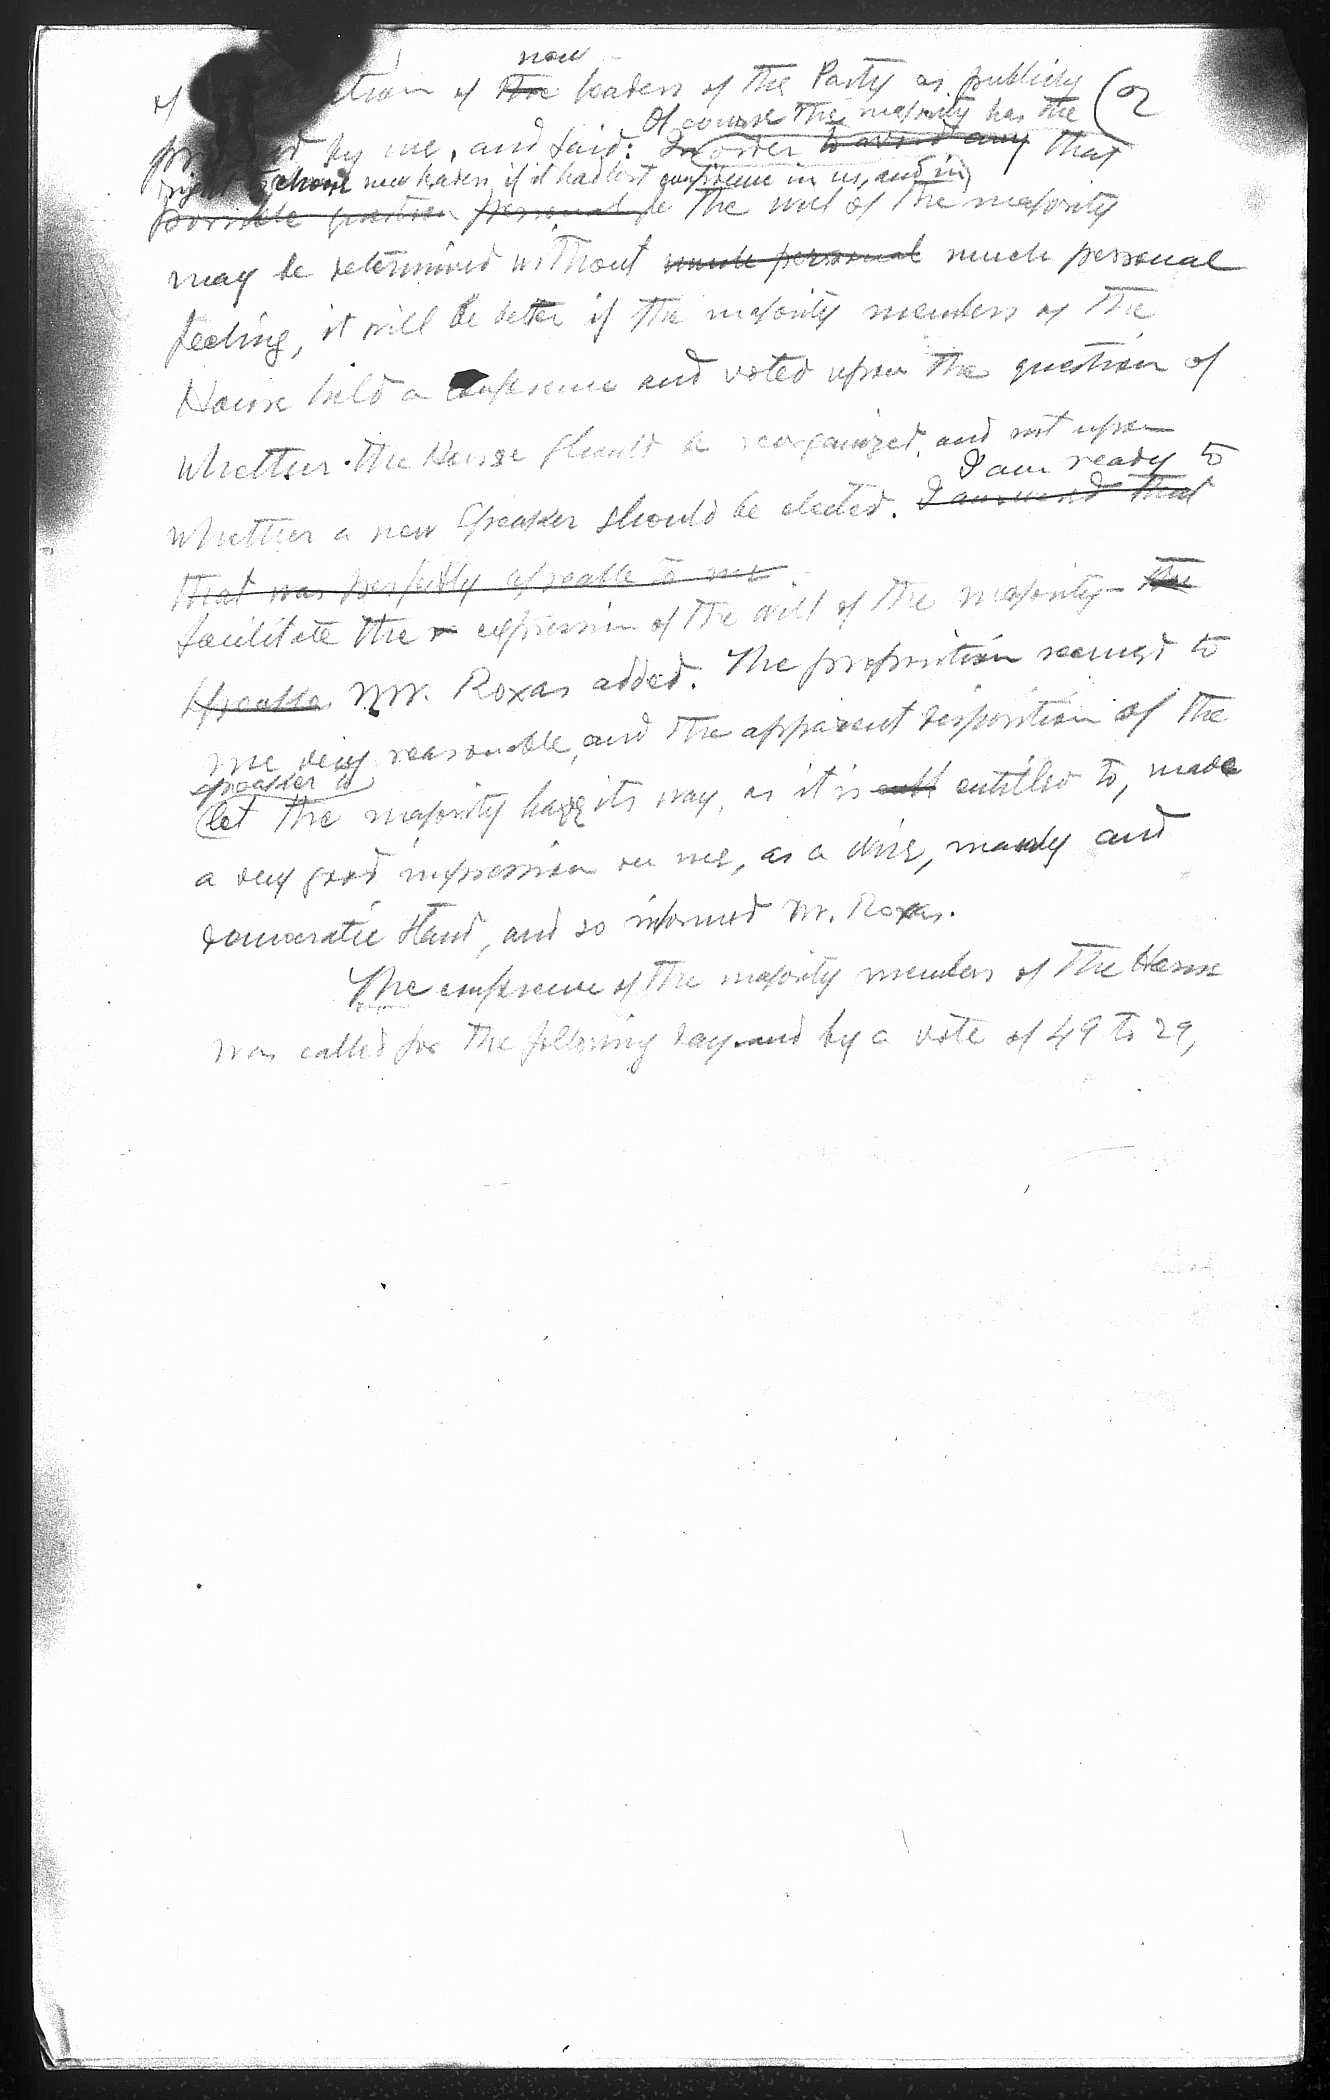 new
of tion of the leaders of the Party as publicly (2
Of course the majority has the
by me, and said: In order to avoid any that
right to choose new leaders if it had lost confidence in us, and in
possible question personal the will of the majority
may be determined without much personal much personal
feeling, it will be better if the majority members of the
House held a conference and voted upon the question of
whether the House should be reorganized, and not upon
I am ready to
whether a new Speaker should be elected. I answered that
that was perfectly agreeable to me.
facilitate the expression of the will of the majority the
Speaker Mr. Roxas added. The proposition seemed to
me very reasonable, and the apparent disposition of the
Speaker to
let the majority have its way, as it is entitled to, made
a very good impression on me, as a wise, manly and
democratic stand, and so informed Mr. Roxas.
The conference of the majority members of the House
was called for the following day and by a vote of 49 to 29,